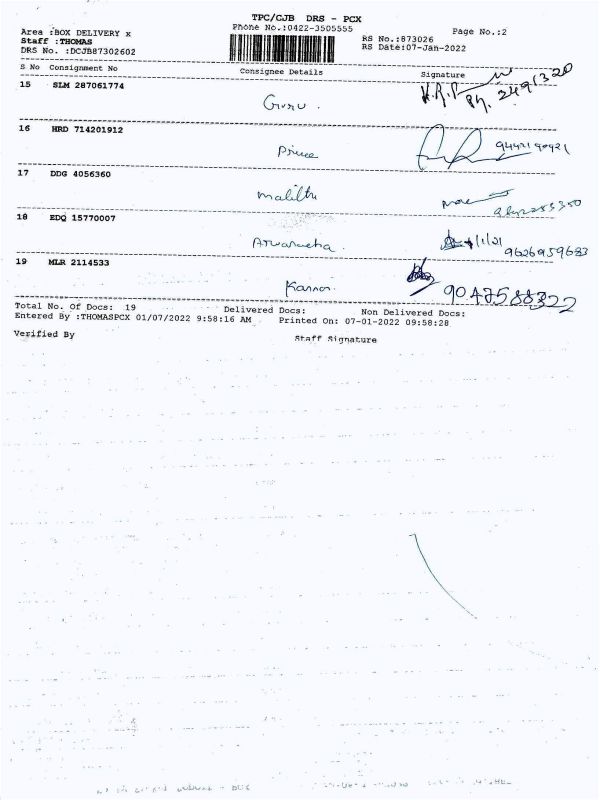 TPC/CJB DRS - PCX
Phone No.:0422-3505555
Page No.:2
Area :BOX DELIVERY x
Staff :THOMAS
DRS No. :DCJB87302602
RS No.:873026
RS Date:07-Jan-2022
S No Consignment No Consignee Details Signature
15 SLM 287061774
Guru .
Ph. 2491320
16 HRD 714201912
Prince
17 DDG 4056360
18 EDQ 15770007
9626959683
19 MLR 2114533
Kannan
9047588322
Total No. Of Docs: 19 Delivered Docs: Non Delivered Docs:
Entered By :THOMASPCX 01/07/2022 9:58:16 AM Printed On: 07-01-2022 09:58:28
Verified By Staff Signature